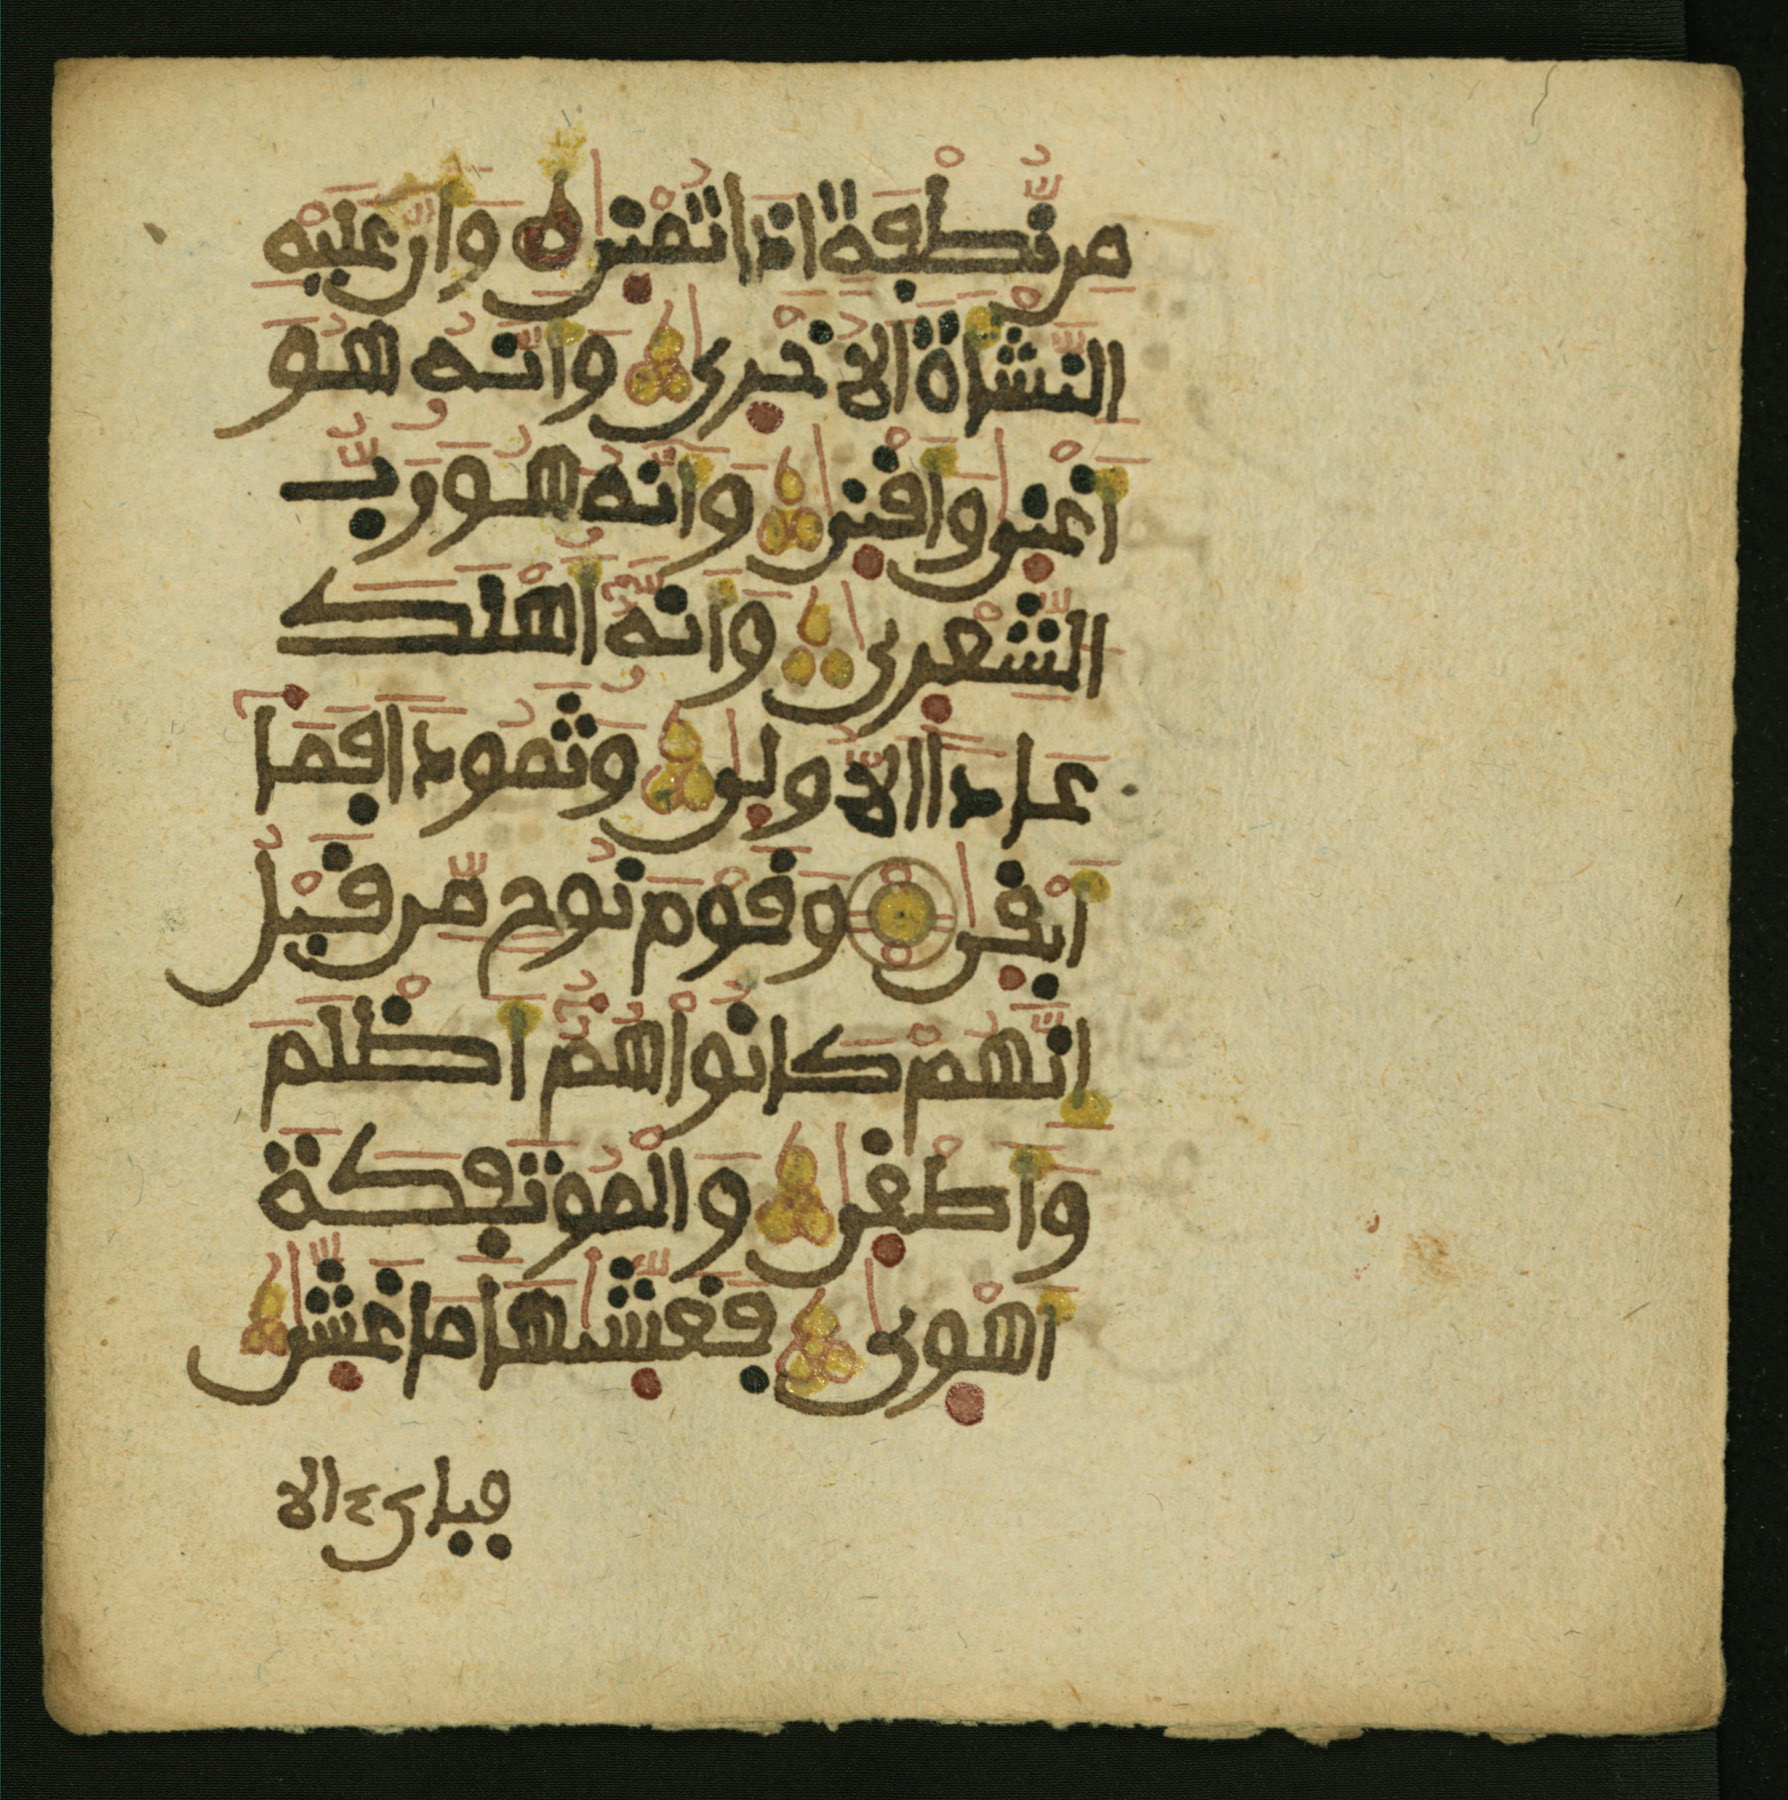 مِن نُّطْفَةٍ اِذَا تُمْنىٰ وَأَنَّ عَلَيْهِ
النَّشْأَةَ الُاخْرىٰ وَأَنَّهُ هُوَ
أَغْنىٰ وَأَقْنىٰ وَأَنَّهُ هُوَ رَبُّ
الشِّعْرىٰ وَأَنَّهُ أَهْلَكَ
عَاداً الُاولىٰ وَثَمُوداً فَمَا
أَبْقىٰ وَقَوْمَ نُوحٍ مِّن قَبْلُ
إِنَّهُمْ كَانُواْ هُمُ أَظْلَمَ
وَأَطْغىٰ وَالْمُوتَفِكَةَ
أَهْوىٰ فَغَشّىٰهَا مَا غَشّىٰ
فباي ءالا